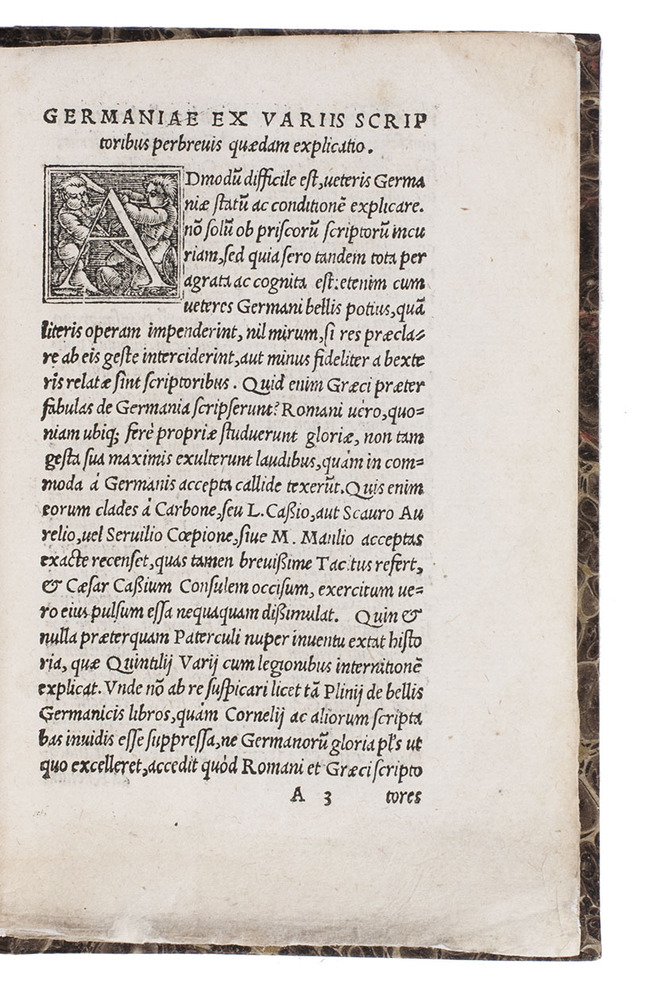 GERMANIAE EX VARIIS SCRIP
toribus perbreuis quædam explicatio.
ADmodũ difficile est,ueteris Germa
niæ statũ ac conditionẽ explicare.
nõ solũ ob priscorũ scriptorũ incu
riam,sed quia sero tandem tota per
agrata ac cognita est:etenim cum
ueteres Germani bellis potius,quã
literis operam impenderint, nil mirum,si res præcla-
re ab eis geste interciderint,aut minus fideliter ab exte
ris relatæ sint scriptoribus. Quid enim Græci præter
fabulas de Germania scripserunt? Romani uero,quo=
niam ubiq; ferè propriæ studuerunt gloriæ, non tam
gesta sua maximis extulerunt laudibus,quám in com=
moda á Germanis accepta callide texerũt.Quis enim
eorum clades á Carbone,seu L.Caßio,aut Scauro Au
relio,uel Seruilio Cœpione,siue M. Manlio acceptas
exacte recenset,quas tamen breuißime Tacitus refert,
& Cæsar Caßium Consulem occisum, exercitum ue=
ro eius pulsum essa nequaquam dißimulat. Quin &
nulla præterquam Paterculi nuper inuenta extat histo
ria, quæ Quintilij Varij cum legionibus internitionẽ
explicat. Vnde nõ ab re suspicari licet tã Plinij de bellis
Germanicis libros,quám Cornelij ac aliorum scripta
bas inuidis esse suppressa,ne Germanorũ gloria pl's ut
quo excelleret,accedit quòd Romani et Græci scripto
A 3 tores